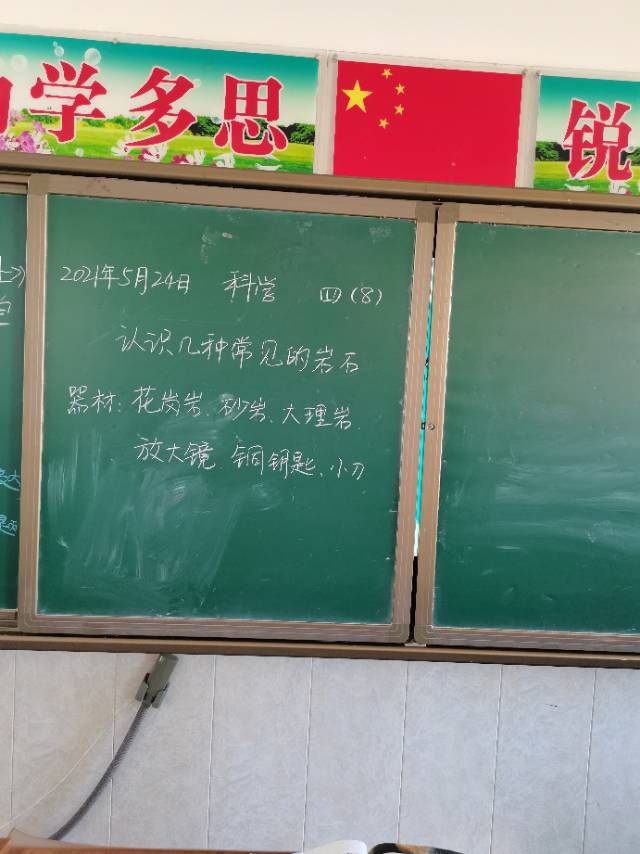 学多思
锐
2021年5月24日 科学 四(8)
认识几种常见的岩石
器材:花岗岩、砂岩、大理岩、
放大镜、铜钥匙、小刀